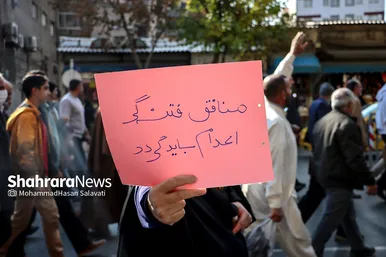 منافق فتنه‌گر
اعدام باید گردد
ShahraraNews
Mohammad Hasan Salavati